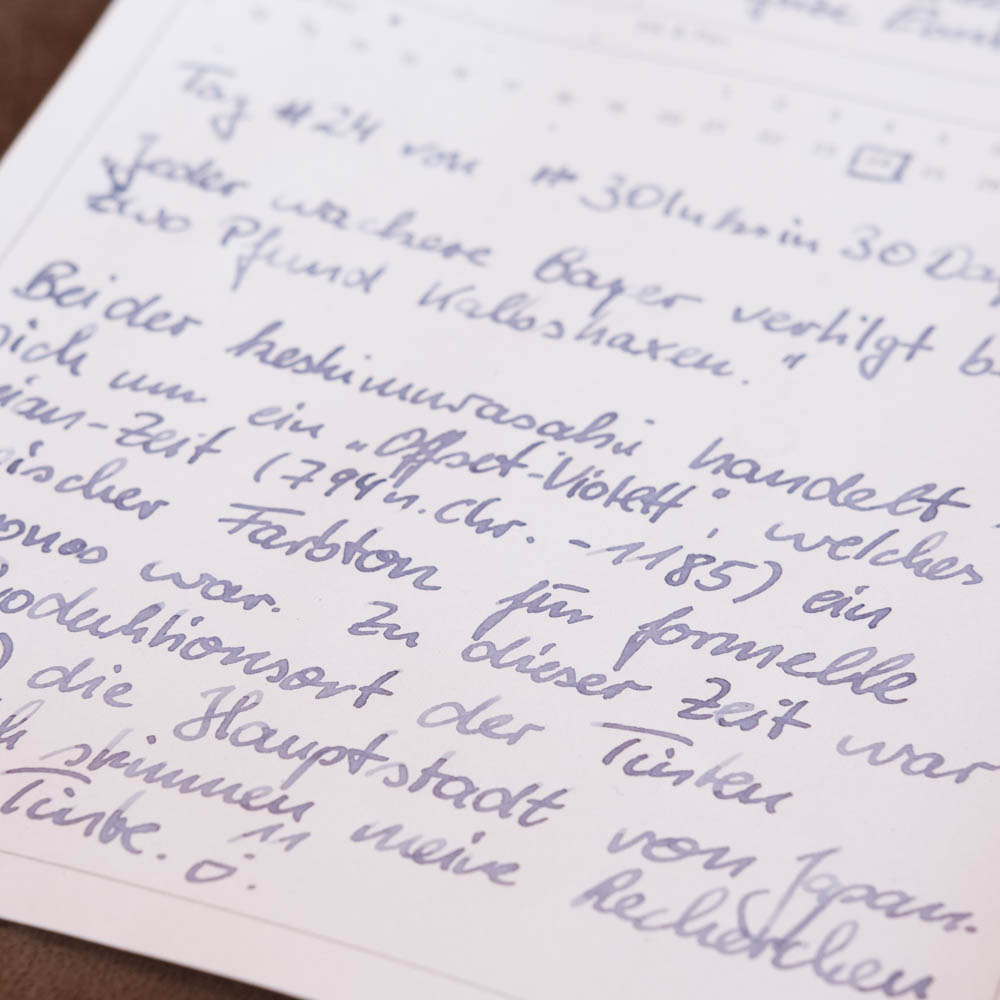 Tag #24 von #30Inksin30Day
„Jeder wackere Bayer vertilgt b
zwo Pfund Kalbshaxen."
Bei der keshimurasaki handelt
sich um ein „Offset-Violett", welches
ian-Zeit (794 n. Chr. - 1185) ein
ischer Farbton für formelle
onos war. Zu dieser Zeit war
oduktionsort der Tinten
) die Hauptstadt von Japan.
h stimmen meine Recherchen
Tinte.